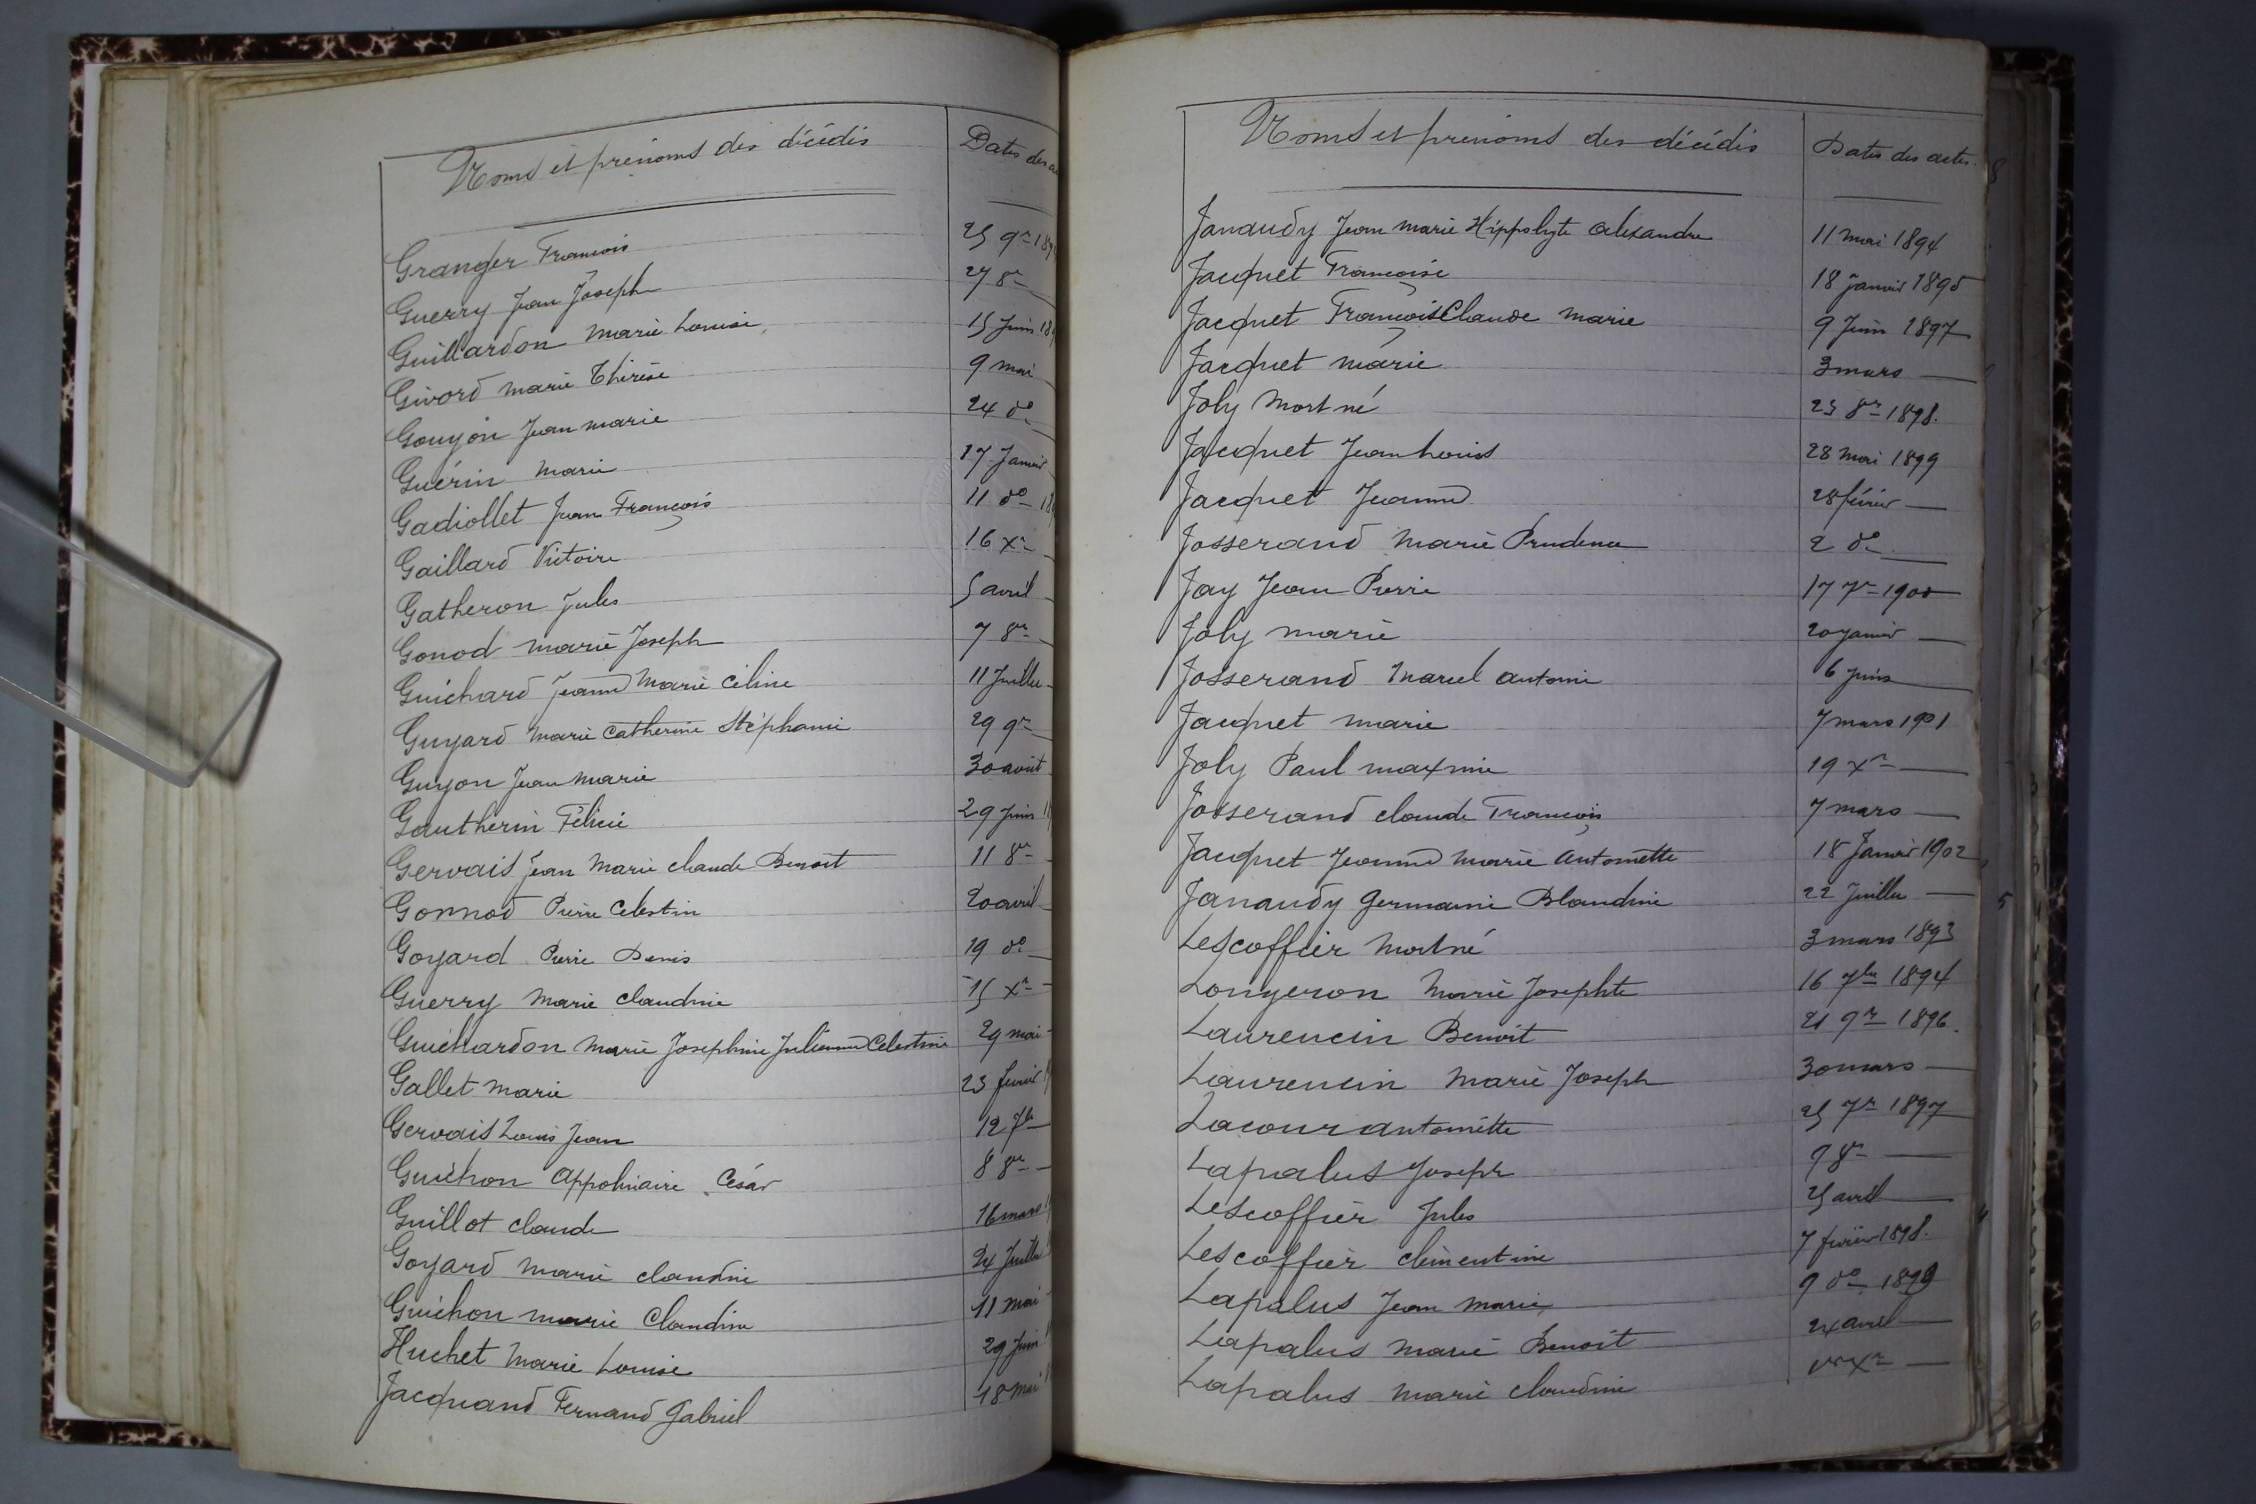 Noms et prénoms des décédés Dates des a
Granger François 25 9re 189
Guerry Jean Joseph 27 8re —
Guillardon Marie Louise 15 Juin 189
Givord Marie Thérèse 9 mai —
Goujon Jean Marie 24 do —
Guérin Marie 17 Janvier
Gadiollet Jean François 11 do — 18
Gaillard Victoire 16 Xre —
Gatheron Jules 5 avril —
Gonod Marie Joseph 7 8re —
Guichard Jeanne Marie Céline 11 Juillet —
Guyard Marie Catherine Stéphanie 29 9re —
Guyon Jean Marie 30 août
Gautherin Félicie 29 Juin 1
Gervais Jean Marie Claude Benoit 11 8re —
Gonnod Pierre Celestin 20 avril —
Goyard Pierre Denis 19 do —
Guerry Marie Claudine 15 Xre —
Guichardon Marie Josephine Julienne Celestine 29 mai —
Gallet Marie 23 février 1
Gervais Louis Jean 12 7bre —
Guichon Appolinaire César 8 8re —
Guillot Claude 16 mars 1
Goyard Marie Claudine 24 Juillet
Guichon Marie Claudine 11 mai —
Huchet Marie Louise 29 Juin 1
Jacquand Fernand Gabriel 18 mai 1
Noms et prénoms des décédés Dates des actes.
Janaudy Jean Marie Hippolyte Alexandre 11 mai 1894
Jacquet Françoise 18 Janvier 1895
Jacquet François Claude Marie 9 Juin 1897
Jacquet Marie 3 mars —
Joly Mort né 25 8re 1898.
Jacquet Jean Louis 28 mai 1899
Jacquet Jeanne 28 février —
Josserand Marie Prudence 2 do —
Jay Jean Pierre 17 7re 1900
Joly Marie 20 Janvier —
Josserand Marcel Antoine 6 Juin —
Jacquet Marie 7 mars 1901
Joly Paul Maxime 19 Xre —
Josserand Claude François 7 mars —
Jacquet Jeanne Marie Antoinette 18 Janvier 1902
Janaudy Germaine Blandine 22 Juillet —
Lescoffier Mort né 3 mars 1893
Longeron Marie Josephte 16 7bre 1894
Laurencin Benoit 21 9re 1896.
Laurencin Marie Joseph 30 mars —
Lacour Antoinette 25 7re 1897
Lapalus Joseph 9 8re —
Lescoffier Jules 25 avril —
Lescoffier Clémentine 7 février 1898.
Lapalus Jean Marie 9 do 1899
Lapalus Marie Benoit 24 avril —
Lapalus Marie Claudine Xre —